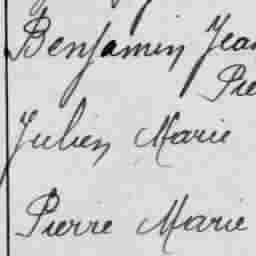 Benjamin Jean
Pie
Julien Marie
Pierre Marie